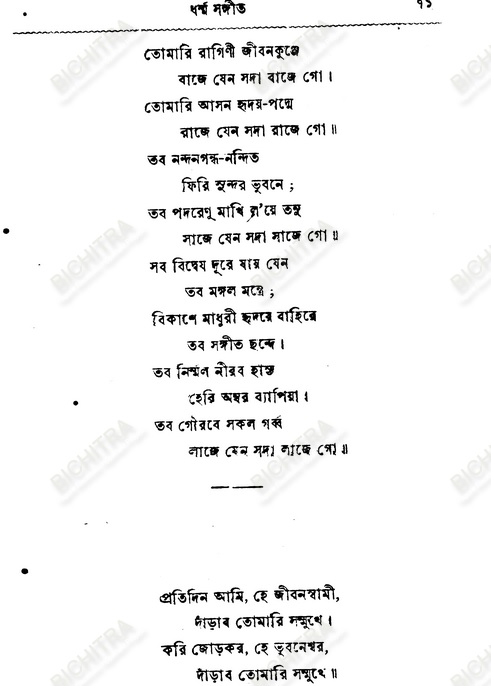 ধর্ম্ম সঙ্গীত ৭১
তোমারি রাগিণী জীবনকুঞ্জে
বাজে যেন সদা বাজে গো।
তোমারি আসন হৃদয়-পদ্মে
রাজে যেন সদা রাজে গো॥
তব নন্দনগন্ধ-নন্দিত
ফিরি সুন্দর ভুবনে;
তব পদরেণু মাখি ল'য়ে তনু
সাজে যেন সদা সাজে গো॥
সব বিদ্বেষ দূরে যায় যেন
তব মঙ্গল মন্ত্রে;
বিকাশে মাধুরী হৃদয়ে বাহিরে
তব সঙ্গীত ছন্দে।
তব নির্ম্মল নীরব হাস্য
হেরি অম্বর ব্যাপিয়া।
তব গৌরবে সকল গর্ব্ব
লাজে যেন সদা লাজে গো॥
প্রতিদিন আমি, হে জীবনস্বামী,
দাঁড়াব তোমারি সম্মুখে।
করি জোড়কর, হে ভুবনেশ্বর,
দাঁড়াব তোমারি সম্মুখে॥
BICHITRA